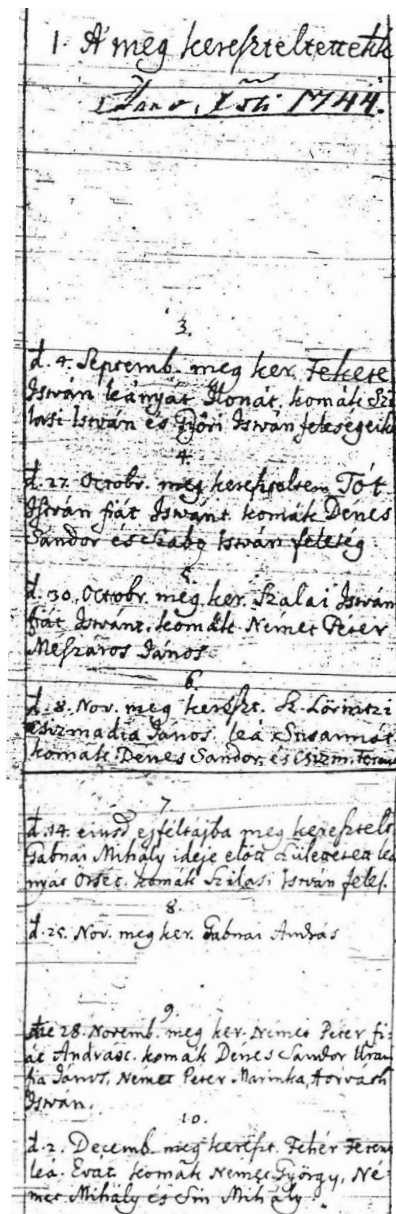 1. A meg kereszteltettek
1744.
3.
d. 4. Septemb. meg ker. Fekete
István leányát Ilonát. komák Szi
lasi István és Győri István feleségeik
4.
d. 27. Octobr. meg kereszteltem Tót
István fiát Istvánt. komák Dénes
Sándor és Szabo István feleség
5.
d. 30. Octobr. meg ker. Szalai István
fiát Istvánt. komák Német Péter
Meszáros János
6.
d. 8. Nov. meg kereszt. Sz. Lörintzi
Csizmadia János leá Susannát
komák Dénes Sandor, és Csizm. Ferenc
7.
d. 14. eiusd ejféltájba meg keresztelt
Gabnai Mihály ideje előtt Született leá
nyát komák Szilasi István feles.
8.
d. 25. Nov. meg ker. Gabnai András
9.
die 28. Novemb. meg ker. Német Péter fi-
át Andrást. komák Dénes Sandor
János, Német Peter Marinka, Horvath
István.
10.
d. 2. Decemb. meg kereszt. Fehér Ferenc
leá. Evát. komák Német György, Né-
met Mihály és Mihály